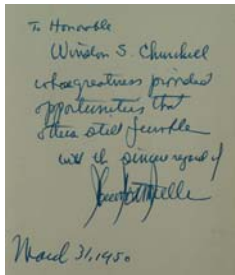 To Honorable
Winston S. Churchill
whose greatness provided
opportunities that
others still fumble
with the sincere regard of
March 31, 1950